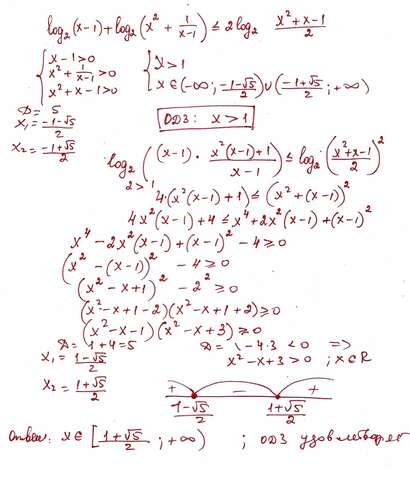 log₂(x-1) + log₂(x² + 1/(x-1)) ≤ 2log₂ (x²+x-1)/2
{ x-1>0
x² + 1/(x-1) >0
x²+x-1>0
{ x>1
x ∈ (-∞; (-1-√5)/2) ∪ ((-1+√5)/2; +∞)
D = 5
x₁ = (-1-√5)/2
x₂ = (-1+√5)/2
ОДЗ: x>1
log₂((x-1) · (x²(x-1)+1)/(x-1)) ≤ log₂((x²+x-1)/2)²
2>1
4·(x²(x-1)+1) ≤ (x²+(x-1))²
4x²(x-1)+4 ≤ x⁴+2x²(x-1)+(x-1)²
x⁴ - 2x²(x-1)+(x-1)² - 4 ≥ 0
(x² - (x-1))² - 4 ≥ 0
(x² - x+1)² - 2² ≥ 0
(x²-x+1-2)(x²-x+1+2) ≥ 0
(x²-x-1)(x²-x+3) ≥ 0
D = 1+4=5
x₁ = (1-√5)/2
x₂ = (1+√5)/2
D = 1-4·3 < 0 ⇒
x²-x+3>0 ; x∈R
+ − +
(1-√5)/2 (1+√5)/2
Ответ: x∈[(1+√5)/2 ; +∞) ; ОДЗ удовлетворяет